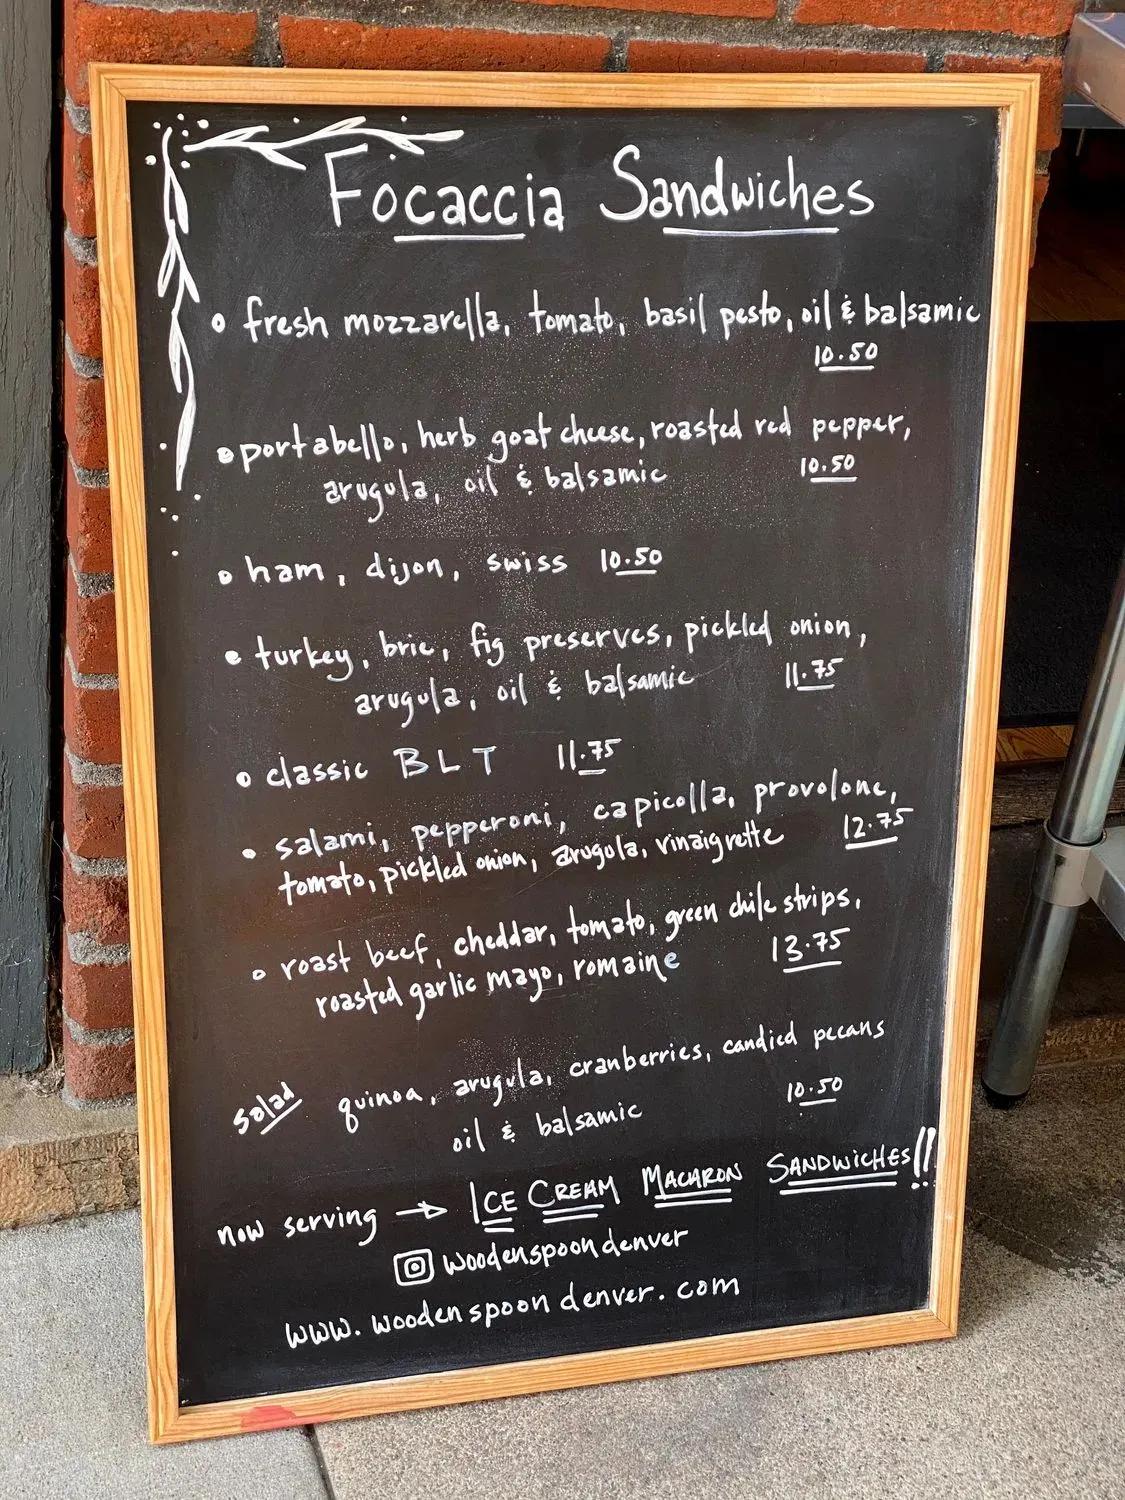 Focaccia Sandwiches
fresh mozzarella, tomato, basil pesto, oil & balsamic
10.50
portabello, herb goat cheese, roasted red pepper,
arugula, oil & balsamic 10.50
ham, dijon, swiss 10.50
turkey, brie, fig preserves, pickled onion,
arugula, oil & balsamic 11.75
classic BLT 11.75
salami, pepperoni, capicolla, provolone,
tomato, pickled onion, arugula, vinaigrette 12.75
roast beef, cheddar, tomato, green chile strips,
roasted garlic mayo, romaine 13.75
salad quinoa, arugula, cranberries, candied pecans
oil & balsamic 10.50
now serving → ICE CREAM MACARON SANDWICHES!!
woodenspoondenver
www.woodenspoondenver.com